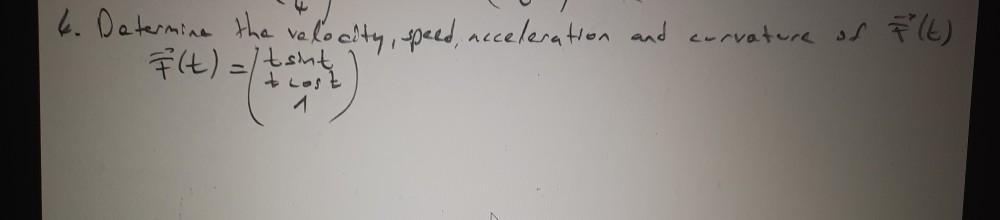 6. Determine the velocity, speed, acceleration and curvature of r⃗(t)
r⃗(t) = (t sin t
t cos t
1)